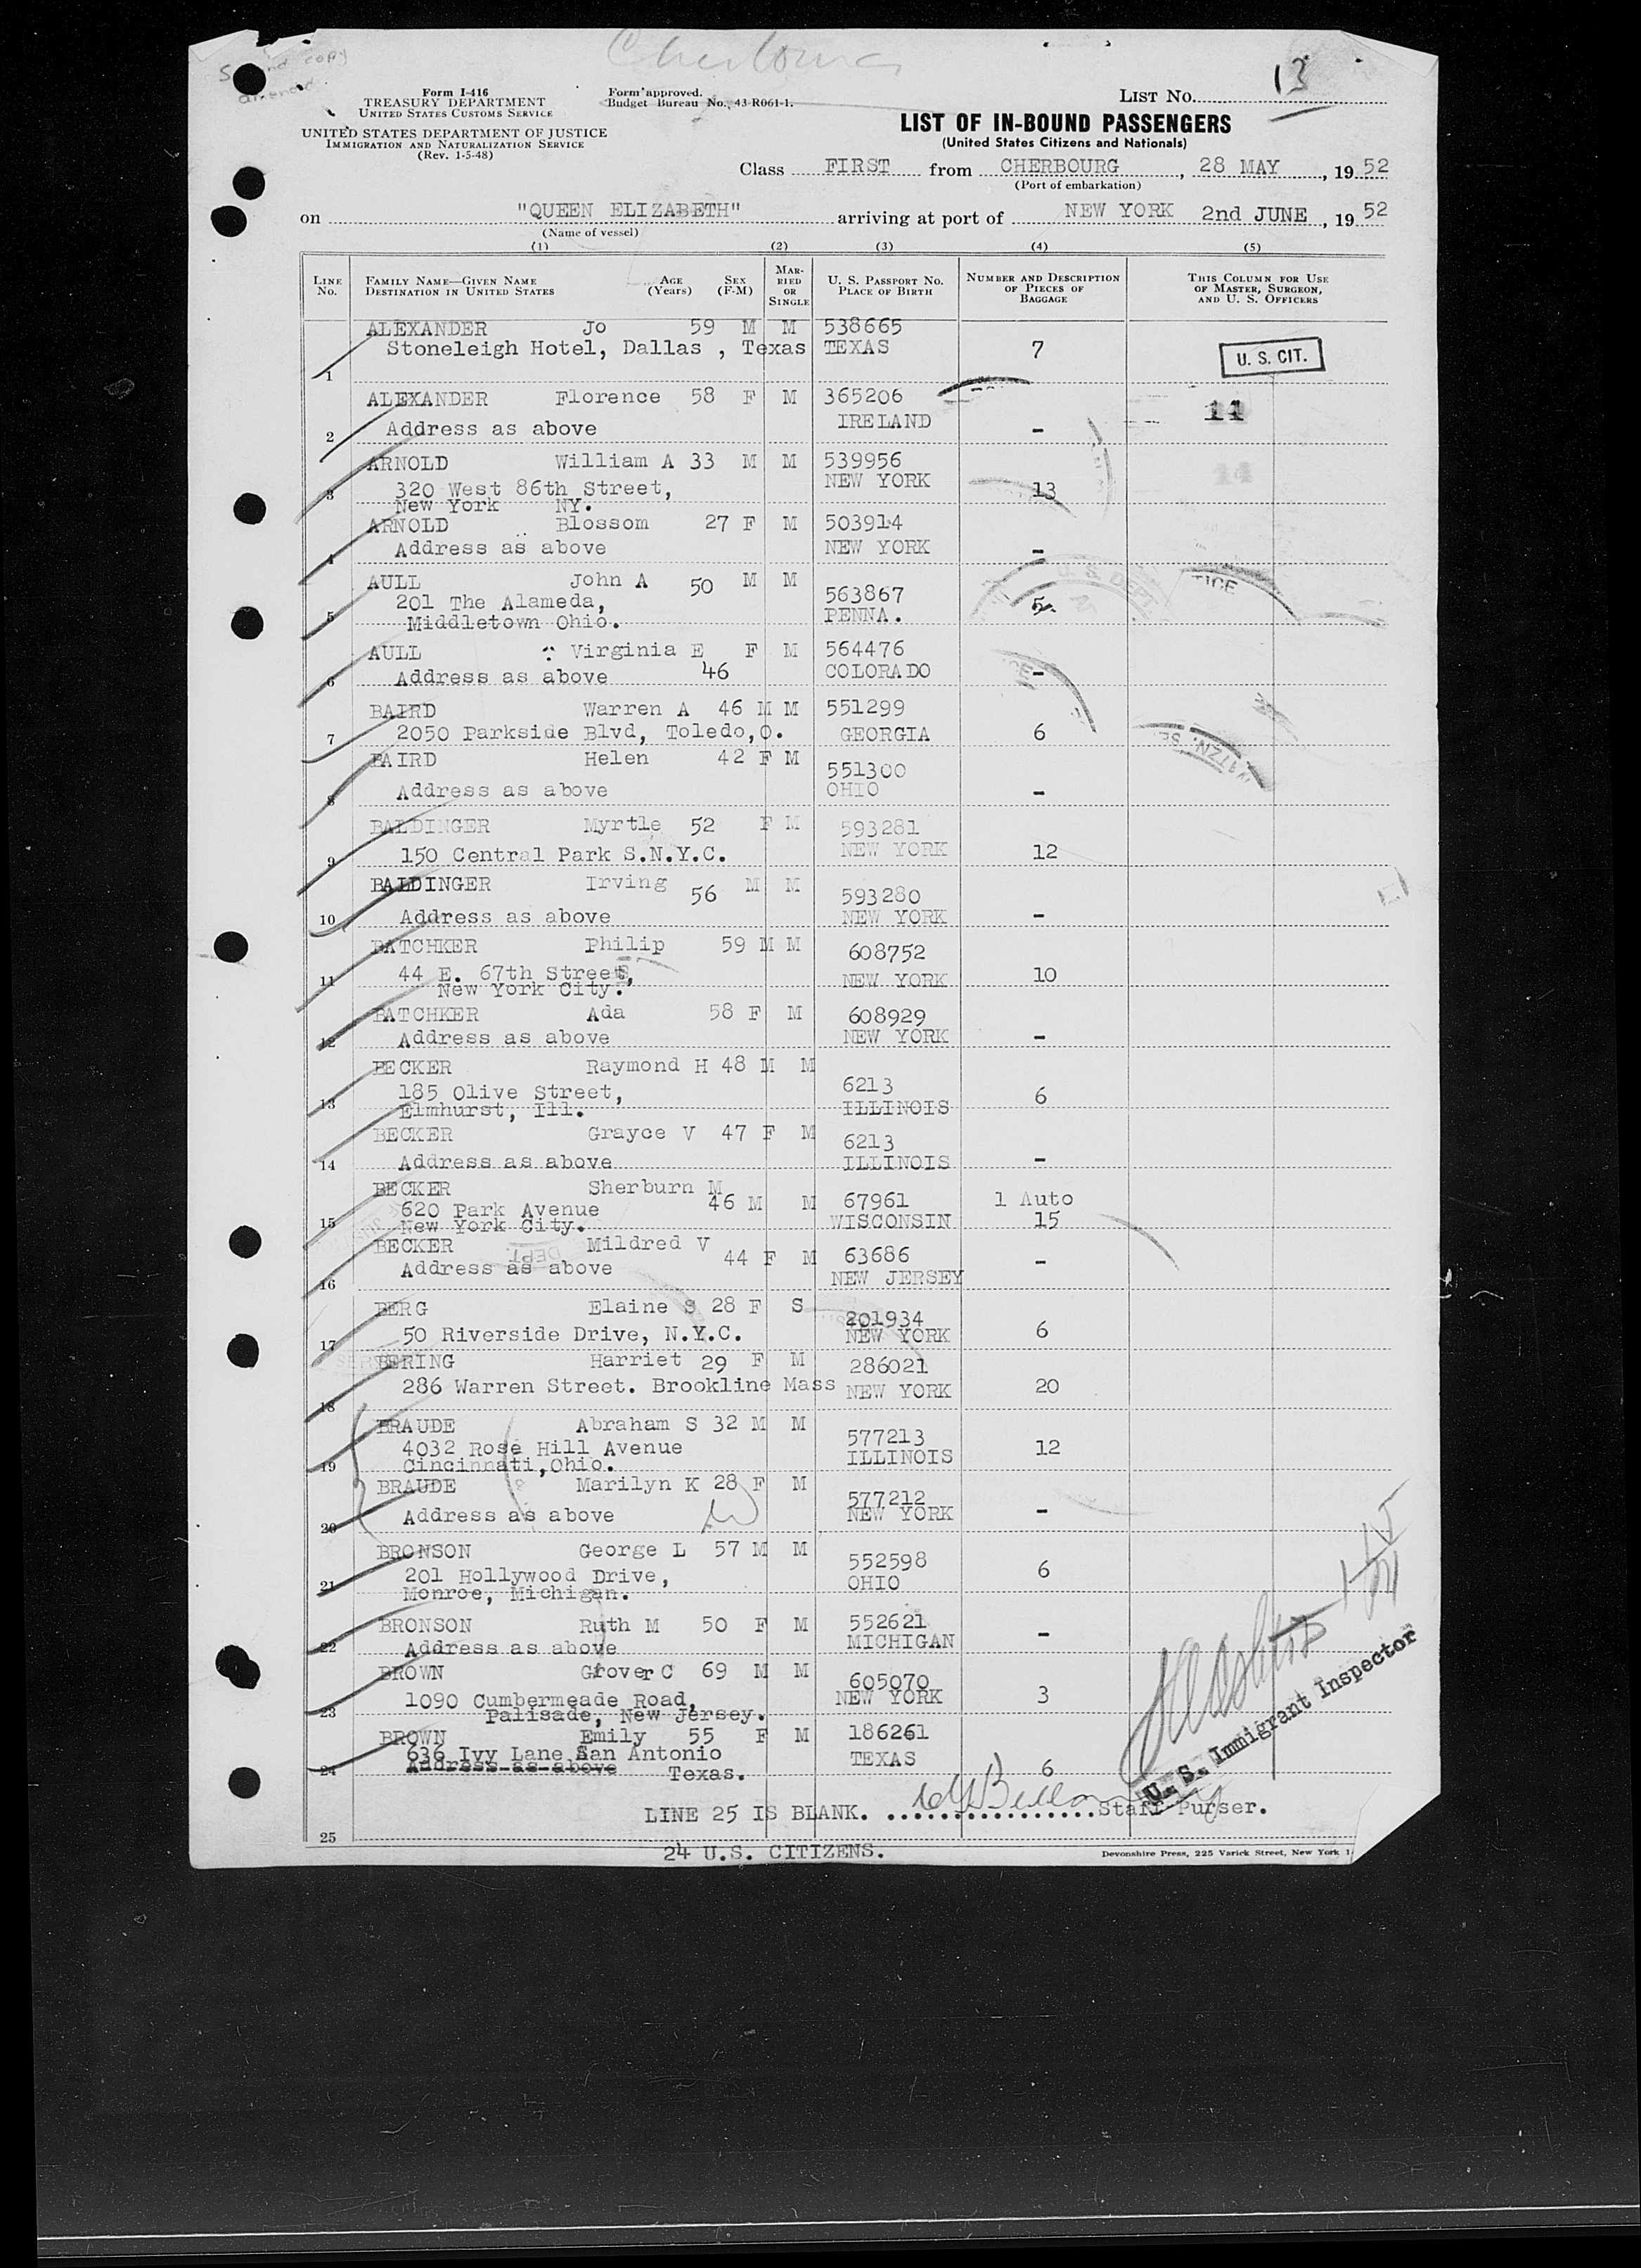 Cherbourg
Second copy
amended.
Form I-416
TREASURY DEPARTMENT
UNITED STATES CUSTOMS SERVICE
UNITED STATES DEPARTMENT OF JUSTICE
IMMIGRATION AND NATURALIZATION SERVICE
(Rev. 1-5-48)
Form approved.
Budget Bureau No. 43-R061-1.
LIST No. 13
LIST OF IN-BOUND PASSENGERS
(United States Citizens and Nationals)
Class FIRST from CHERBOURG, 28 MAY, 19 52
(Port of embarkation)
on "QUEEN ELIZABETH" arriving at port of NEW YORK 2nd JUNE, 19 52
(Name of vessel)
(1) (2) (3) (4) (5)
LINE No. FAMILY NAME—GIVEN NAME DESTINATION IN UNITED STATES AGE (Years) SEX (F-M) MARRIED OR SINGLE U. S. PASSPORT No. PLACE OF BIRTH NUMBER AND DESCRIPTION OF PIECES OF BAGGAGE THIS COLUMN FOR USE OF MASTER, SURGEON, AND U. S. OFFICERS
ALEXANDER Jo 59 M M 538665
Stoneleigh Hotel, Dallas , Texas TEXAS 7 U. S. CIT.
1
ALEXANDER Florence 58 F M 365206 11
2 Address as above IRELAND -
ARNOLD William A 33 M M 539956 14
3 320 West 86th Street, NEW YORK 13
New York NY.
ARNOLD Blossom 27 F M 503914
4 Address as above NEW YORK -
AULL John A 50 M M 563867
201 The Alameda, 5
5 Middletown Ohio. PENNA.
AULL Virginia E F M 564476
6 Address as above 46 COLORADO -
BAIRD Warren A 46 M M 551299
7 2050 Parkside Blvd, Toledo,O. GEORGIA 6
BAIRD Helen 42 F M 551300
8 Address as above OHIO -
BALDINGER Myrtle 52 F M 593281
9 150 Central Park S.N.Y.C. NEW YORK 12
BALDINGER Irving 56 M M 593280
10 Address as above NEW YORK -
BATCHKER Philip 59 M M 608752
11 44 E. 67th Street, NEW YORK 10
New York City.
BATCHKER Ada 58 F M 608929
12 Address as above NEW YORK -
BECKER Raymond H 48 M M 6213
13 185 Olive Street, ILLINOIS 6
Elmhurst, Ill.
BECKER Grayce V 47 F M 6213
14 Address as above ILLINOIS -
BECKER Sherburn M 46 M M 67961 1 Auto
15 620 Park Avenue WISCONSIN 15
New York City.
BECKER Mildred V 44 F M 63686
16 Address as above NEW JERSEY -
BERG Elaine S 28 F S 201934
17 50 Riverside Drive, N.Y.C. NEW YORK 6
BERING Harriet 29 F M 286021
18 286 Warren Street. Brookline Mass NEW YORK 20
BRAUDE Abraham S 32 M M 577213
19 4032 Rose Hill Avenue ILLINOIS 12
Cincinnati,Ohio.
BRAUDE Marilyn K 28 F M 577212
20 Address as above NEW YORK -
BRONSON George L 57 M M 552598
21 201 Hollywood Drive, OHIO 6
Monroe, Michigan.
BRONSON Ruth M 50 F M 552621
22 Address as above MICHIGAN -
BROWN Grover C 69 M M 605070
23 1090 Cumbermeade Road, NEW YORK 3
Palisade, New Jersey.
BROWN Emily 55 F M 186261
636 Ivy Lane San Antonio TEXAS
24 Address as above Texas. 6
U. S. Immigrant Inspector
LINE 25 IS BLANK. ................Staff Purser.
25
24 U.S. CITIZENS.
Devonshire Press, 225 Varick Street, New York 1